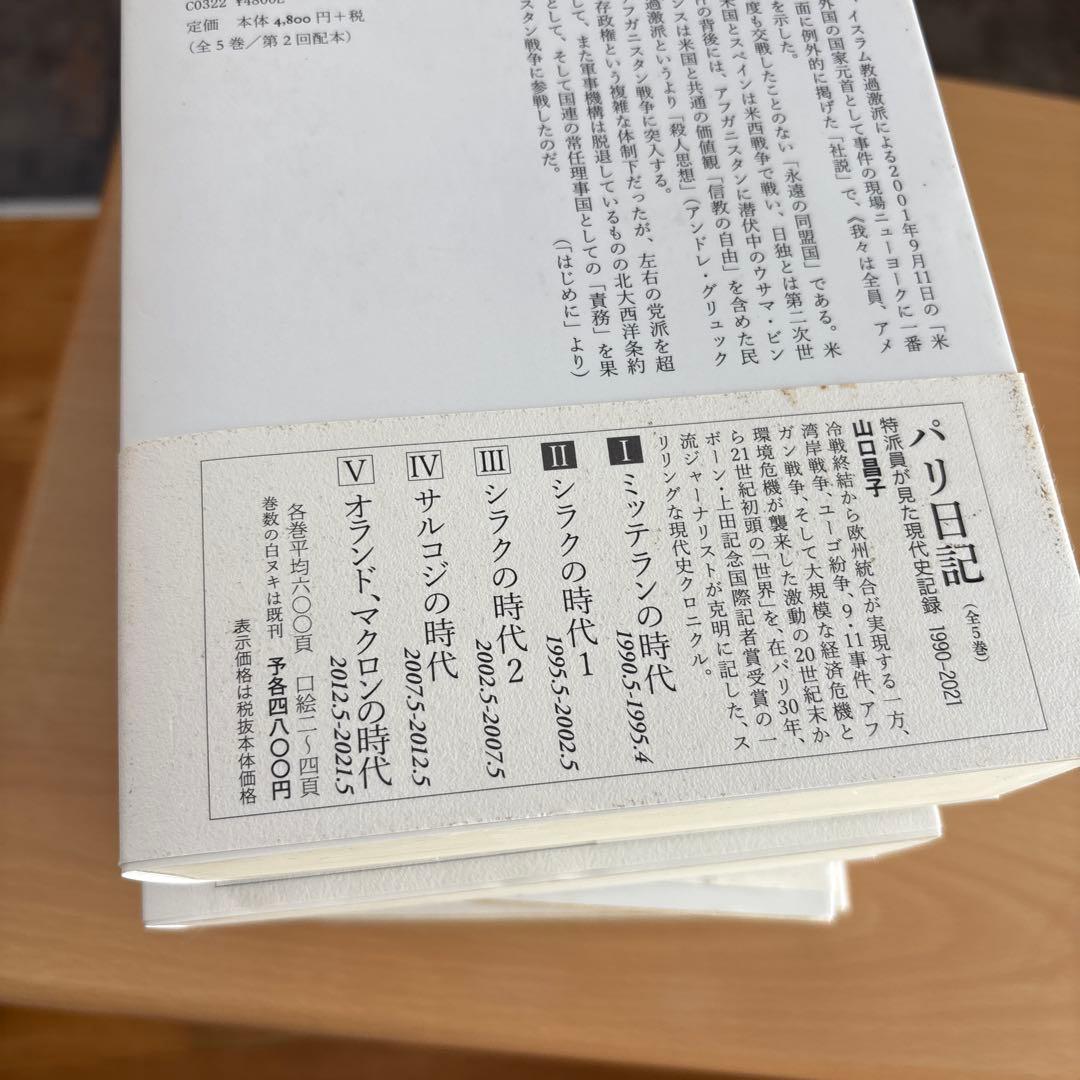 C0322 ¥4800E
定価 本体4,800円+税
(全5巻/第2回配本)
イスラム教過激派による2001年9月11日の「米
外国の国家元首として事件の現場ニューヨークに一番
面に例外的に掲げた「社説」で、《我々は全員、アメ
を示した。
度も交戦したことのない「永遠の同盟国」である。米
米国とスペインは米西戦争で戦い、日独とは第二次世
の背後には、アフガニスタンに潜伏中のウサマ・ビン
ンスは米国と共通の価値観「信教の自由」を含めた民
過激派というより「殺人思想」(アンドレ・グリュック
アフガニスタン戦争に突入する。
存政権という複雑な体制下だったが、左右の党派を超
して、また軍事機構は脱退しているものの北大西洋条約
として、そして国連の常任理事国としての「責務」を果
スタン戦争に参戦したのだ。
(「はじめに」より)
パリ日記 (全5巻)
特派員が見た現代史記録 1990-2021
山口昌子
冷戦終結から欧州統合が実現する一方、
湾岸戦争、ユーゴ紛争、9・11事件、アフ
ガン戦争、そして大規模な経済危機と
環境危機が襲来した激動の20世紀末か
ら21世紀初頭の「世界」を、在パリ30年、
ボーン・上田記念国際記者賞受賞の一
流ジャーナリストが克明に記した、ス
リリングな現代史クロニクル。
I ミッテランの時代 1990.5-1995.4
II シラクの時代1 1995.5-2002.5
III シラクの時代2 2002.5-2007.5
IV サルコジの時代 2007.5-2012.5
V オランド、マクロンの時代 2012.5-2021.5
各巻平均六〇〇頁 口絵二〜四頁
巻数の白ヌキは既刊 予各四八〇〇円
表示価格は税抜本体価格